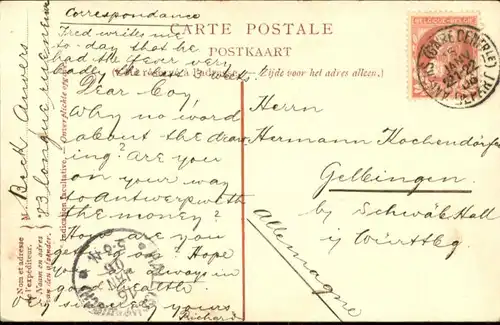 Correspondance
Fred writes me
to-day that he
had the fever very
badly this week.
CARTE POSTALE
POSTKAART
(Côté réservé à l'adresse. — Zijde voor het adres alleen.)
Dear Coy!
Why no word
about the draw-
ing? are you
on your way
to Antwerp with
the money?
How are you
getting on? Hope
you are in
good health
Very sincerely yours
Richard
Herrn
Hermann Kochendörfer
Gelbingen
by Schwäb Hall
in Württbg.
Allemagne
M. Beck Anvers
83 longue rue
Nom et adresse
de l'expéditeur.
Naam en adres
van den afzender.
Indication facultative. Onverplichte opgave.
ANVERS (GARE CENTRALE)
JANV
21-22